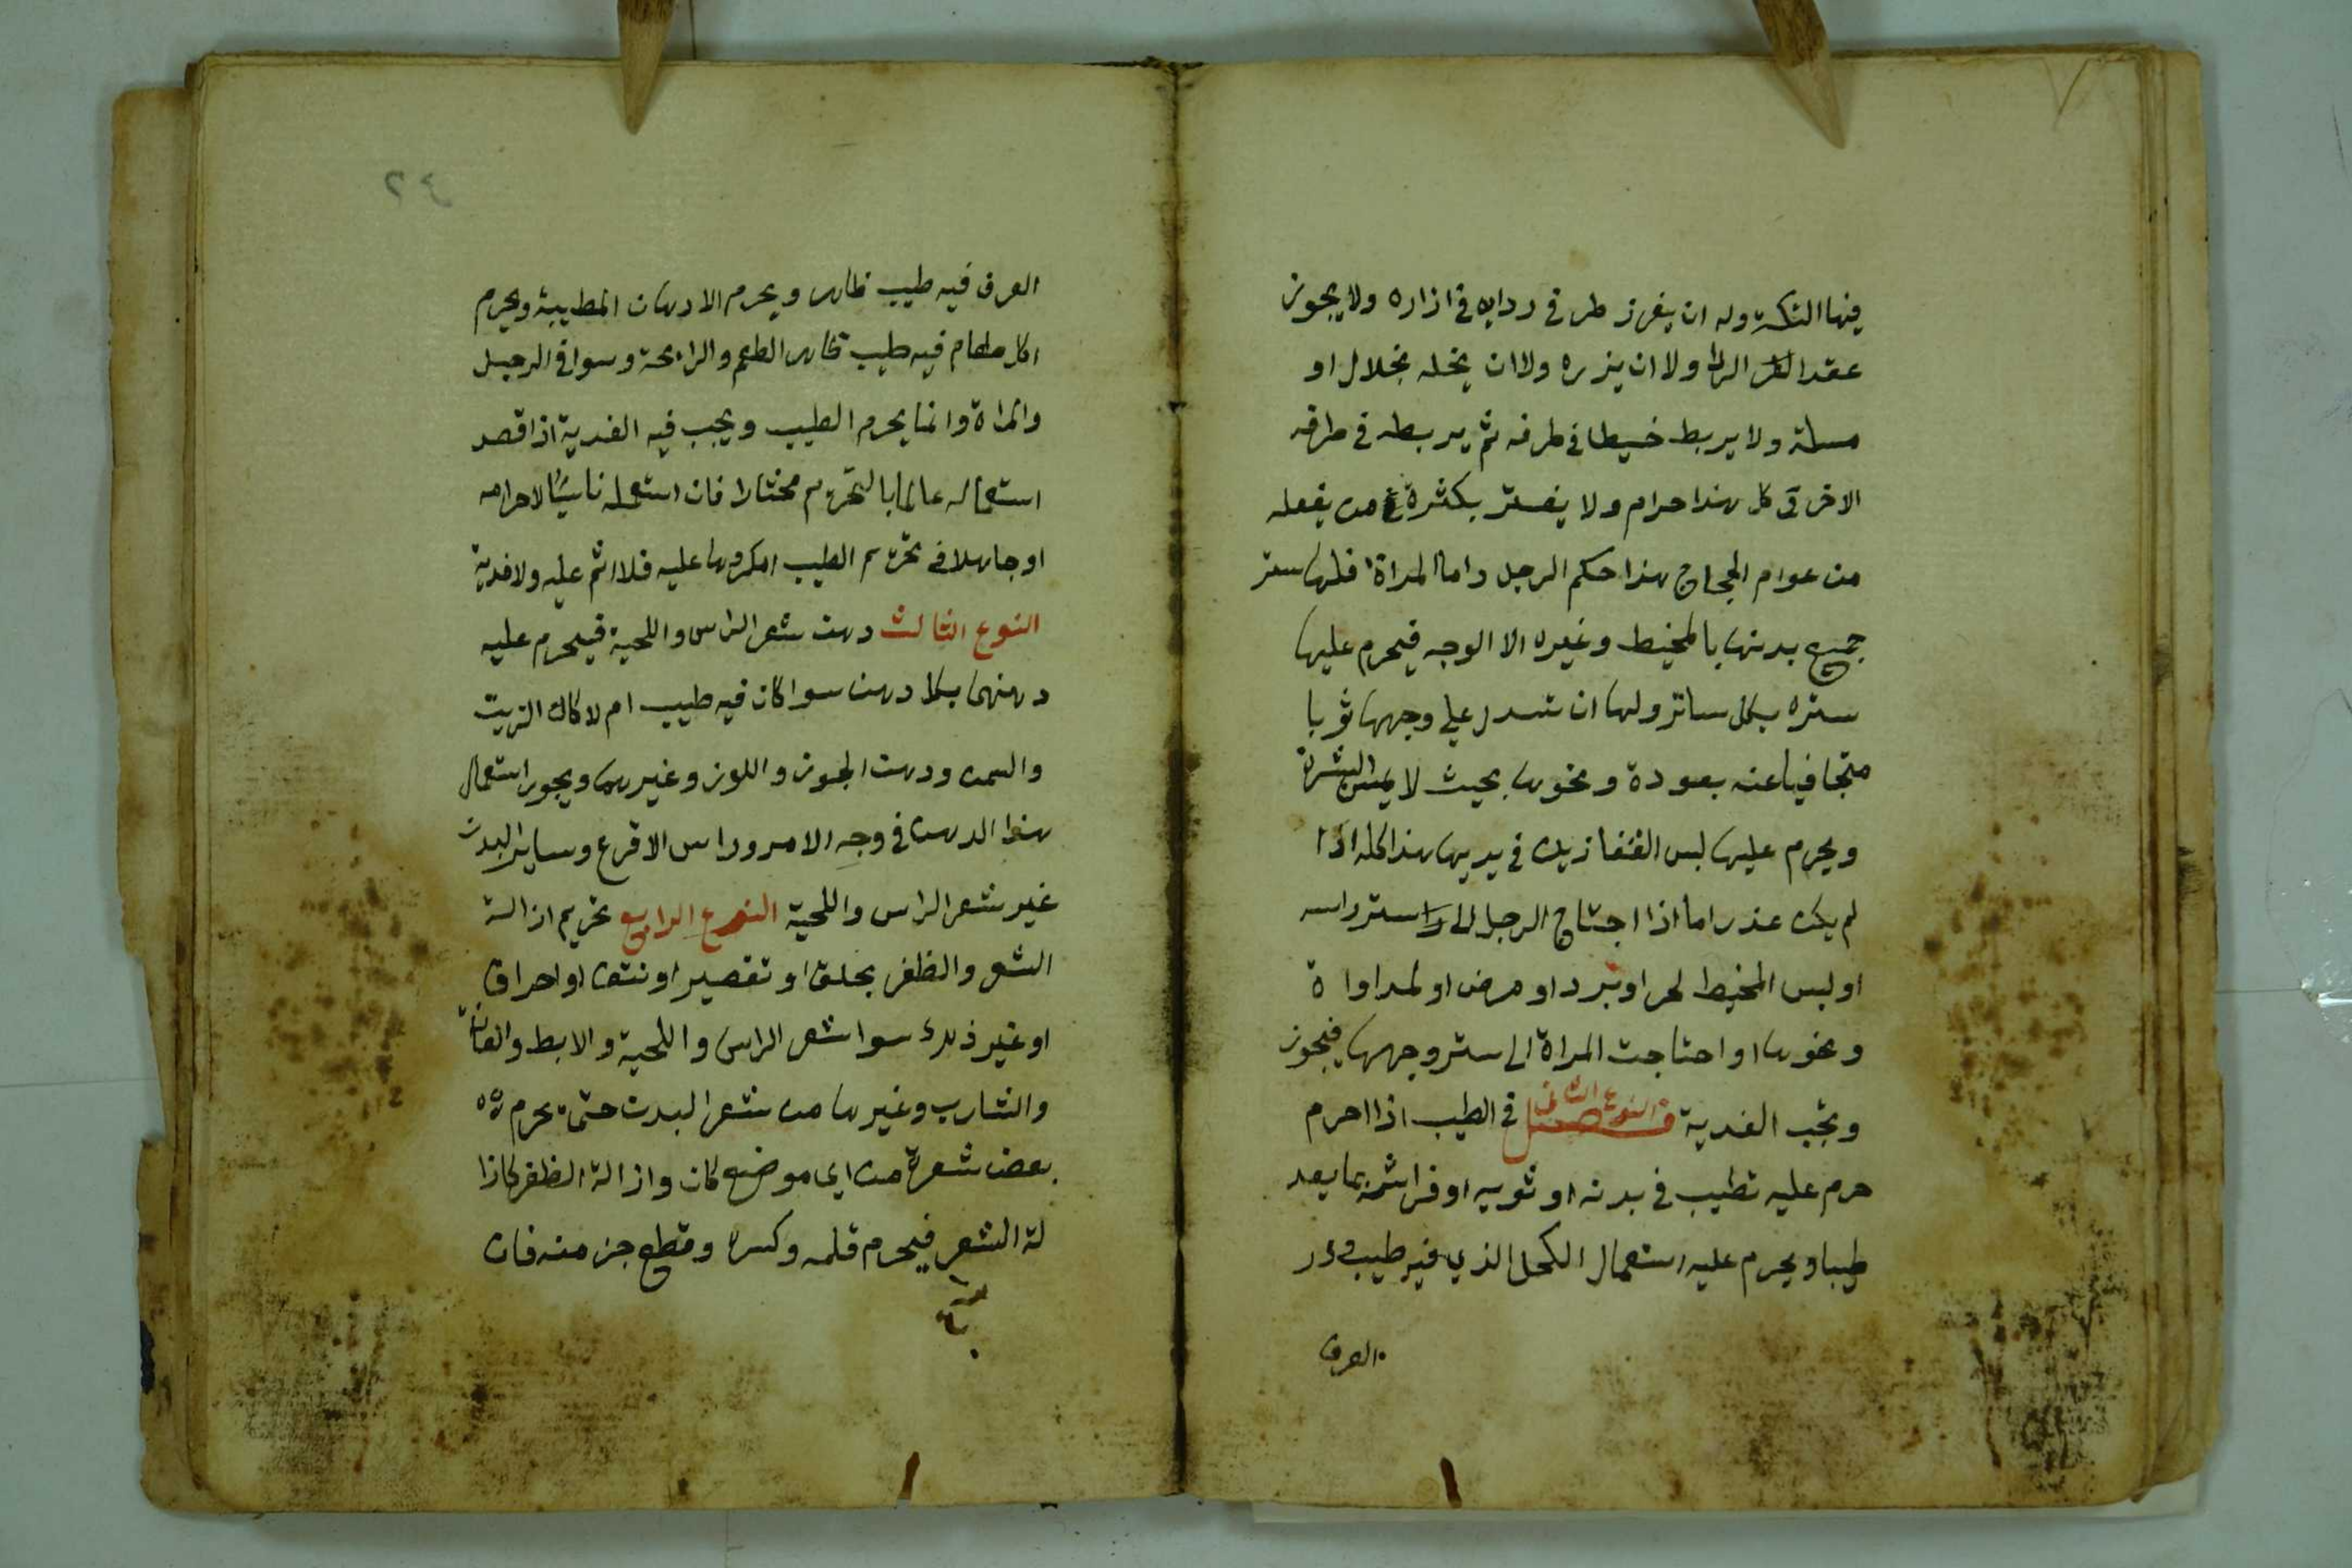 فيها التكة وله ان يغرز طرفي ردايه في ازاره ولا يجوز
عقد الردا ولا ان يزره ولا ان يخله بخلال او
مسلة ولا يربط خيطا في طرفه ثم يربطه في طرفه
الاخر فى كل هذا حرام ولا يغتر بكثرة من يفعله
من عوام الحجاج هذا حكم الرجل واما المراة فلها ستر
جميع بدنها بالمخيط وغيره الا الوجه فيحرم عليها
ستره بكل ساتر ولها ان تسدل على وجهها ثوبا
متجافيا عنه بعودة ونحوها بحيث لا يمس البشرة
ويحرم عليها لبس القفازين في يديها هذا كله اذا
لم يكن عذر اما اذا احتاج الرجل الى ستر راسه
او لبس المخيط لحر او برد او مرض او لمداواة
ونحوها او احتاجت المراة الى ستر وجهها فيجوز
وتجب الفدية النوع الثاني فصل في الطيب اذا احرم
حرم عليه تطيب في بدنه او ثوبه او فراشه بما يعد
طيبا ويحرم عليه استعمال الكحل الذي فيه طيب ودر
العرق
٤٢
العرق فيه طيب ظاهر ويحرم الادهان المطيبة ويحرم
اكل طعام فيه طيب ظاهر الطعم والرايحة وسوا في الرجل
والمراة وانما يحرم الطيب ويجب فيه الفدية اذا قصد
استعماله عالما بالتحريم مختارا فان استعمله ناسيا لاحرامه
او جاهلا في تحريم الطيب امكروها عليه فلا اثم عليه ولا فدية
النوع الثالث دهن شعر الراس واللحية فيحرم عليه
دهنهما بكل دهن سوا كان فيه طيب ام لا كالزيت
والسمن ودهن الجوز واللوز وغيرها ويجوز استعمال
هذا الدهن في وجه الامرد وراس الاقرع وساير البدن
غير شعر الراس واللحية النوع الرابع تحريم ازالة
الشعر والظفر بحلق او تقصير او نتف او احراق
او غير ذلك سوا شعر الراس واللحية والابط والعانة
والشارب وغيرها من شعر البدن حتى يحرم
بعض شعرة من اي موضع كان وازالة الظفر كازا
لة الشعر فيحرم قلمه وكسره وقطع جز منه فان